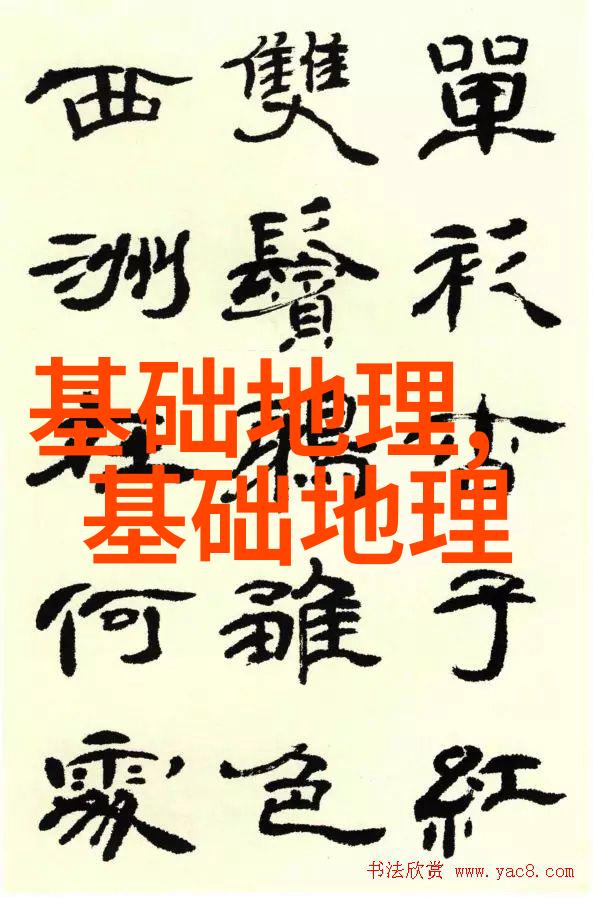 單衫杏子紅
雙鬢鴉雛色
西洲在何處
基础地理,
基础地理
书法欣赏 www.yac8.com